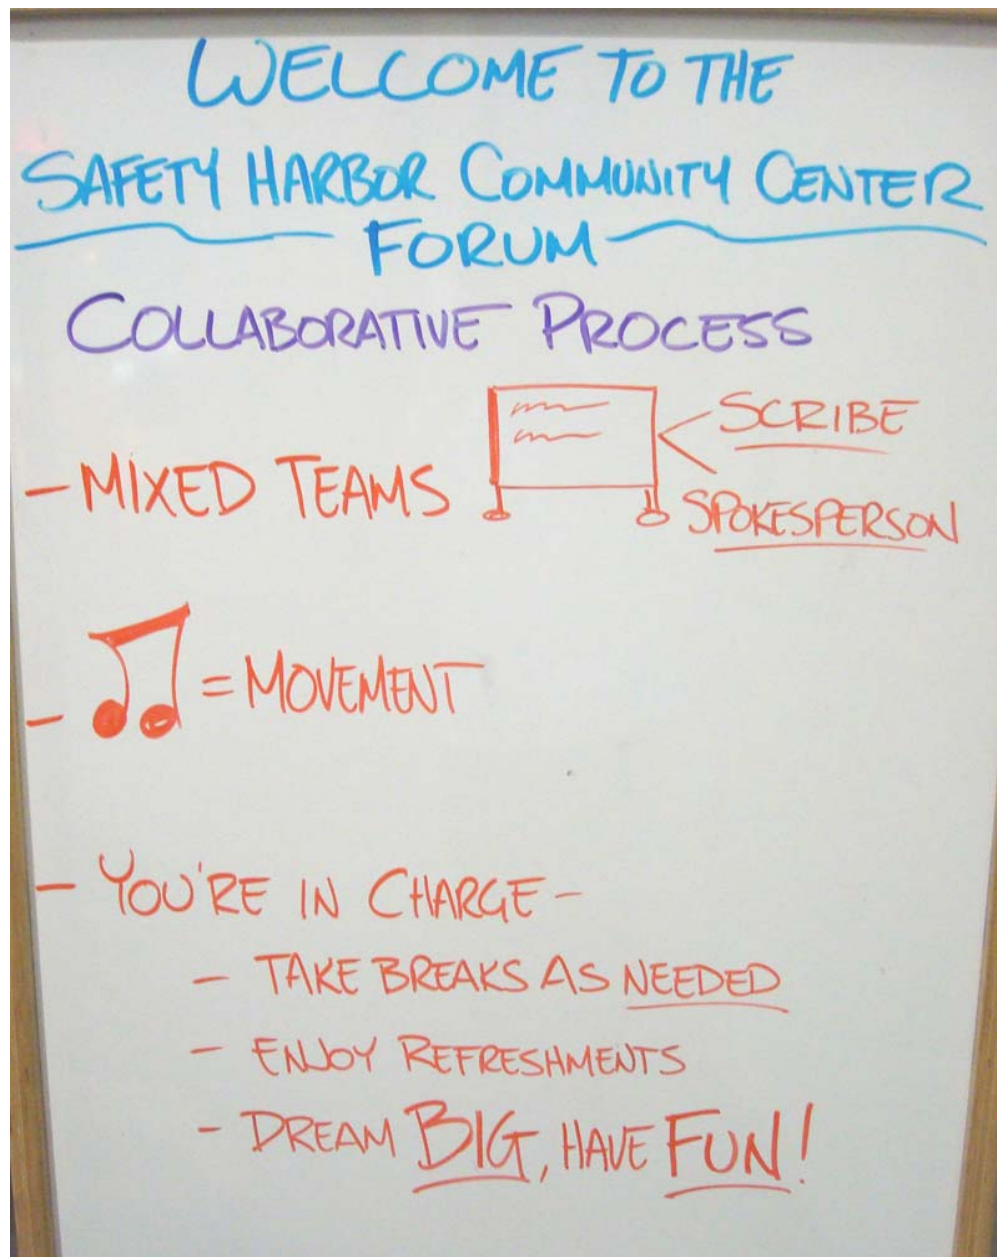 WELCOME TO THE
SAFETY HARBOR COMMUNITY CENTER
FORUM
COLLABORATIVE PROCESS
- MIXED TEAMS
SCRIBE
SPOKESPERSON
- = MOVEMENT
- YOU'RE IN CHARGE -
- TAKE BREAKS AS NEEDED
- ENJOY REFRESHMENTS
- DREAM BIG, HAVE FUN!